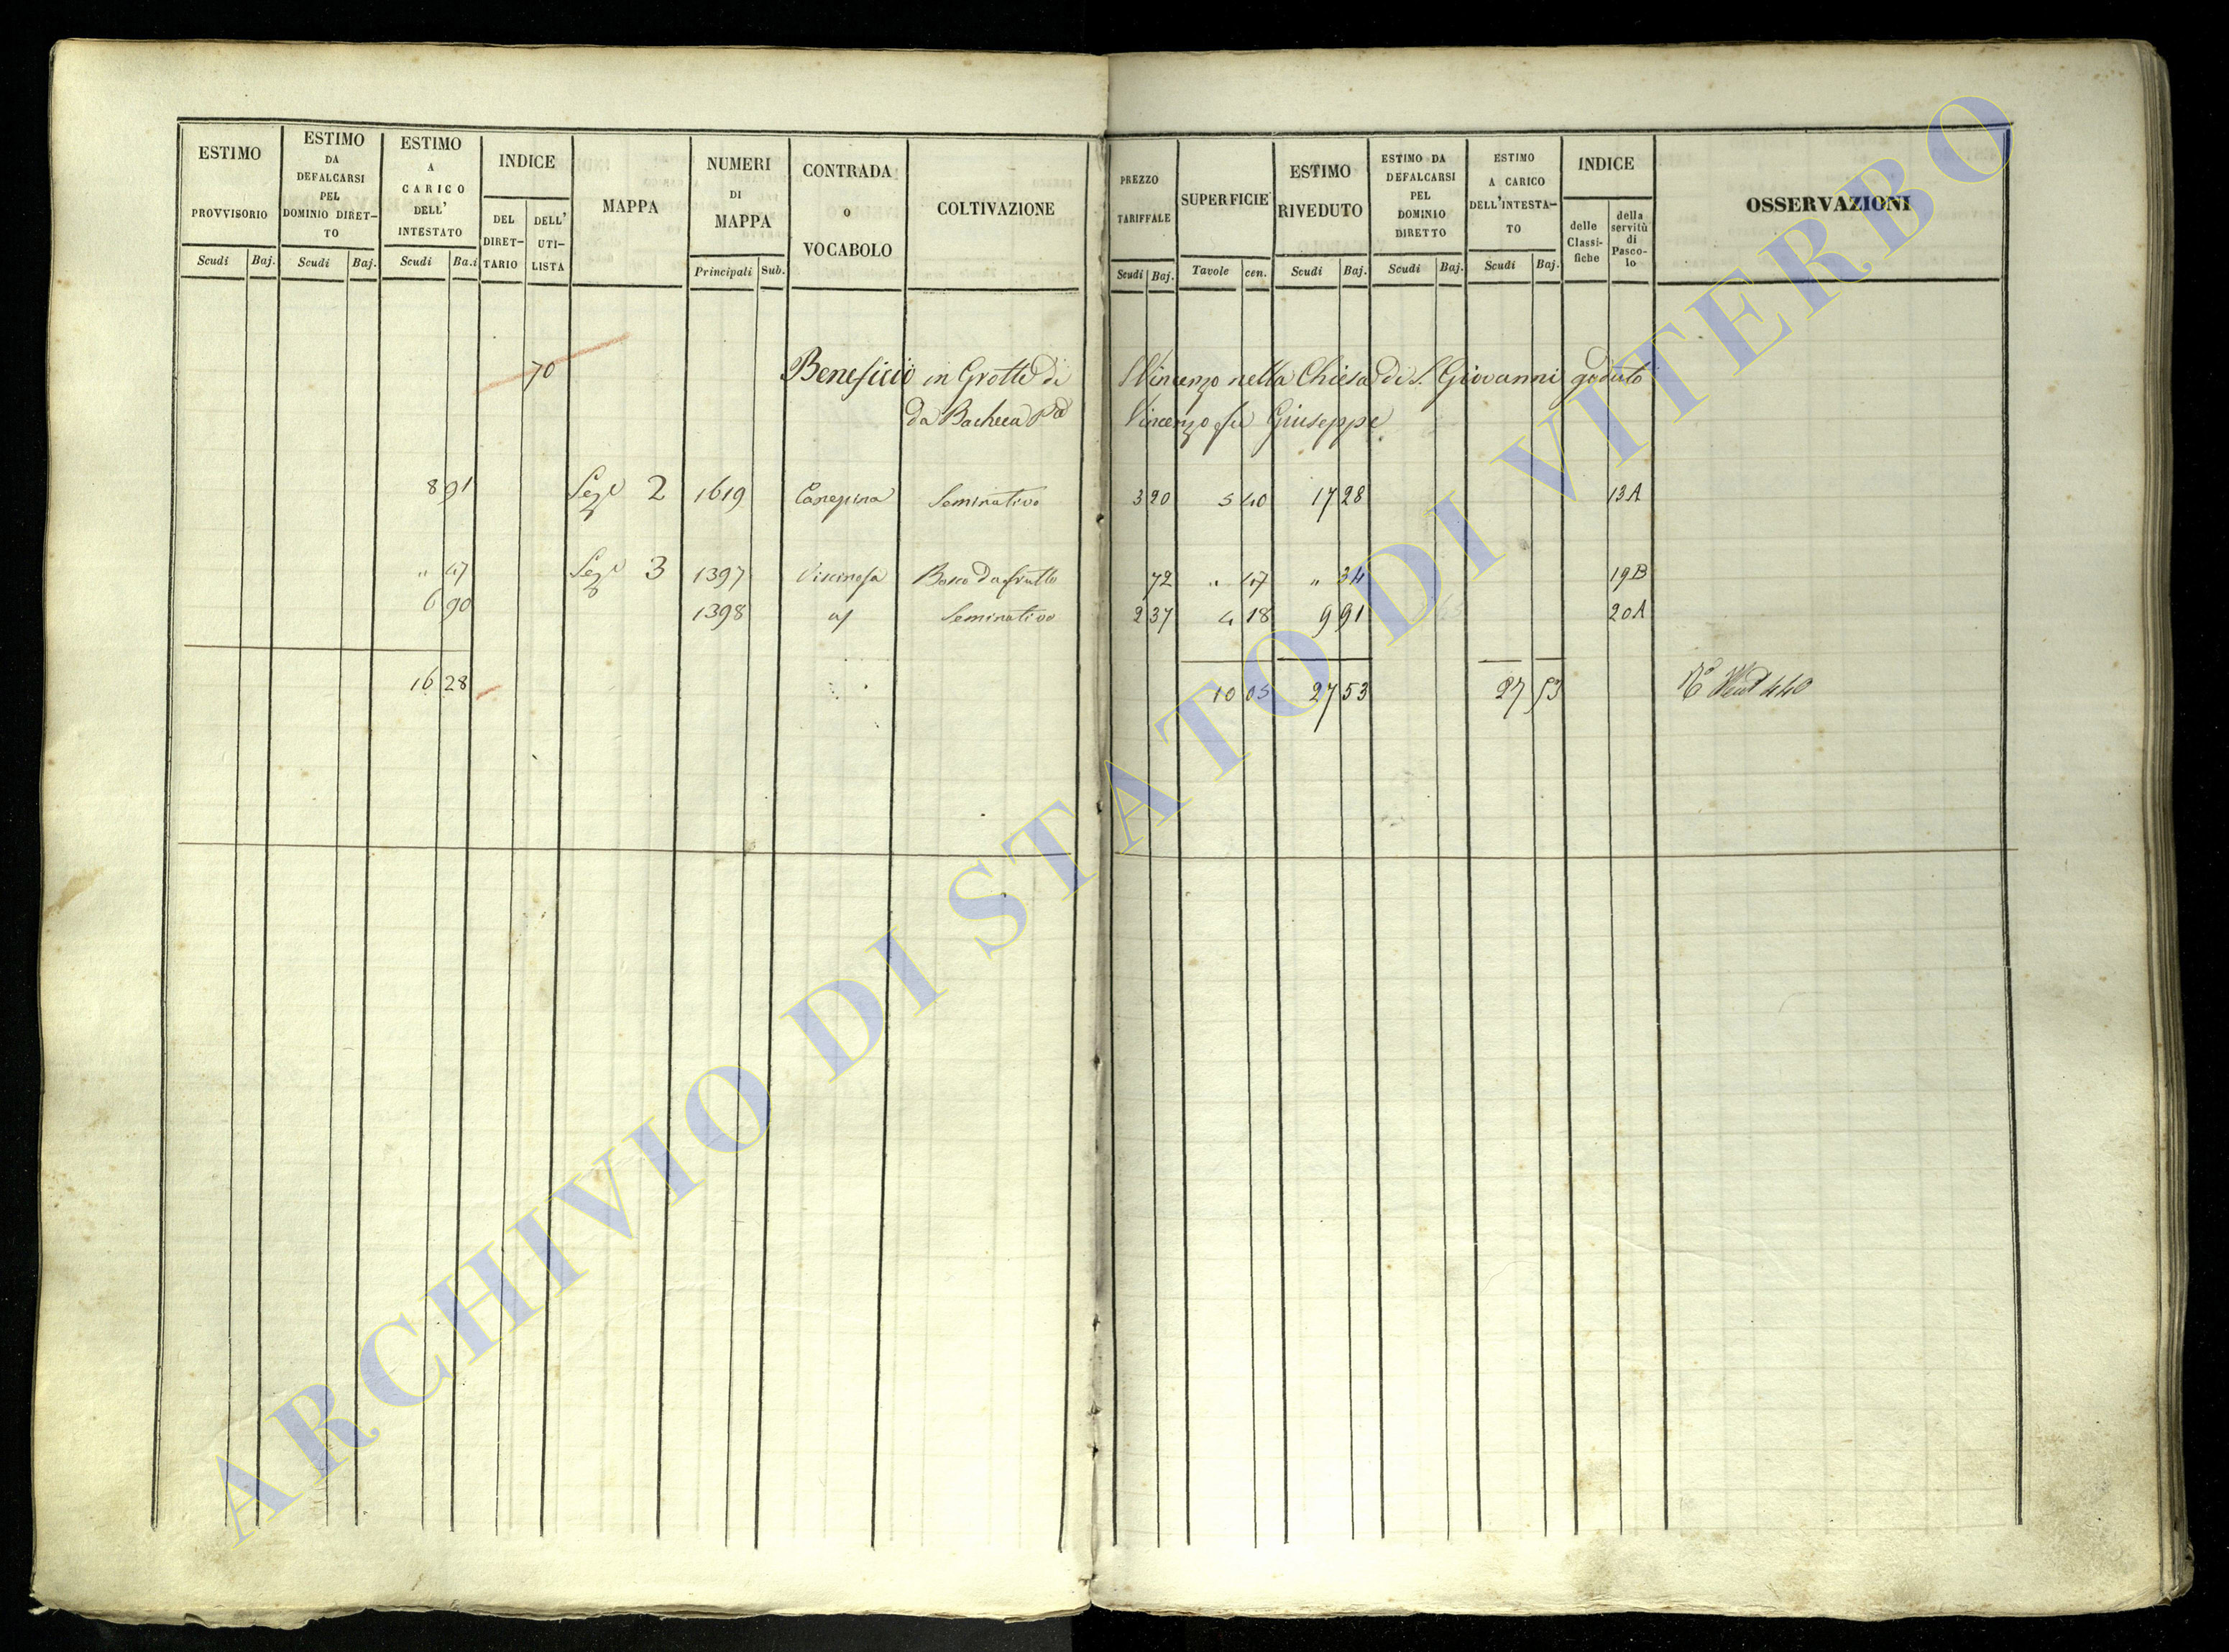 ESTIMO PROVVISORIO Scudi Baj.
ESTIMO DA DEFALCARSI PEL DOMINIO DIRET-TO Scudi Baj.
ESTIMO A CARICO DELL' INTESTATO Scudi Ba.i
INDICE DEL DIRET-TARIO DELL' UTI-LISTA
MAPPA
NUMERI DI MAPPA Principali Sub.
CONTRADA o VOCABOLO
COLTIVAZIONE
PREZZO TARIFFALE Scudi Baj.
SUPERFICIE Tavole cen.
ESTIMO RIVEDUTO Scudi Baj.
ESTIMO DA DEFALCARSI PEL DOMINIO DIRETTO Scudi Baj.
ESTIMO A CARICO DELL'INTESTA-TO Scudi Baj.
INDICE delle Classi-fiche della servitù di Pasco-lo
OSSERVAZIONI
70 Beneficio in Grotte di S Vincenzo nella Chiesa di S. Giovanni goduto
da Bacheca Vincenzo fu Giuseppe
8 91 Sez 2 1619 Canepina Seminativo 3 20 5 40 17 28 13A
" 47 Sez 3 1397 Bosco da frutto 72 " 47 " 34 19B
6 90 1398 Seminativo 2 37 4 18 9 91 20A
16 28 10 05 27 53 27 53 440
ARCHIVIO DI STATO DI VITERBO